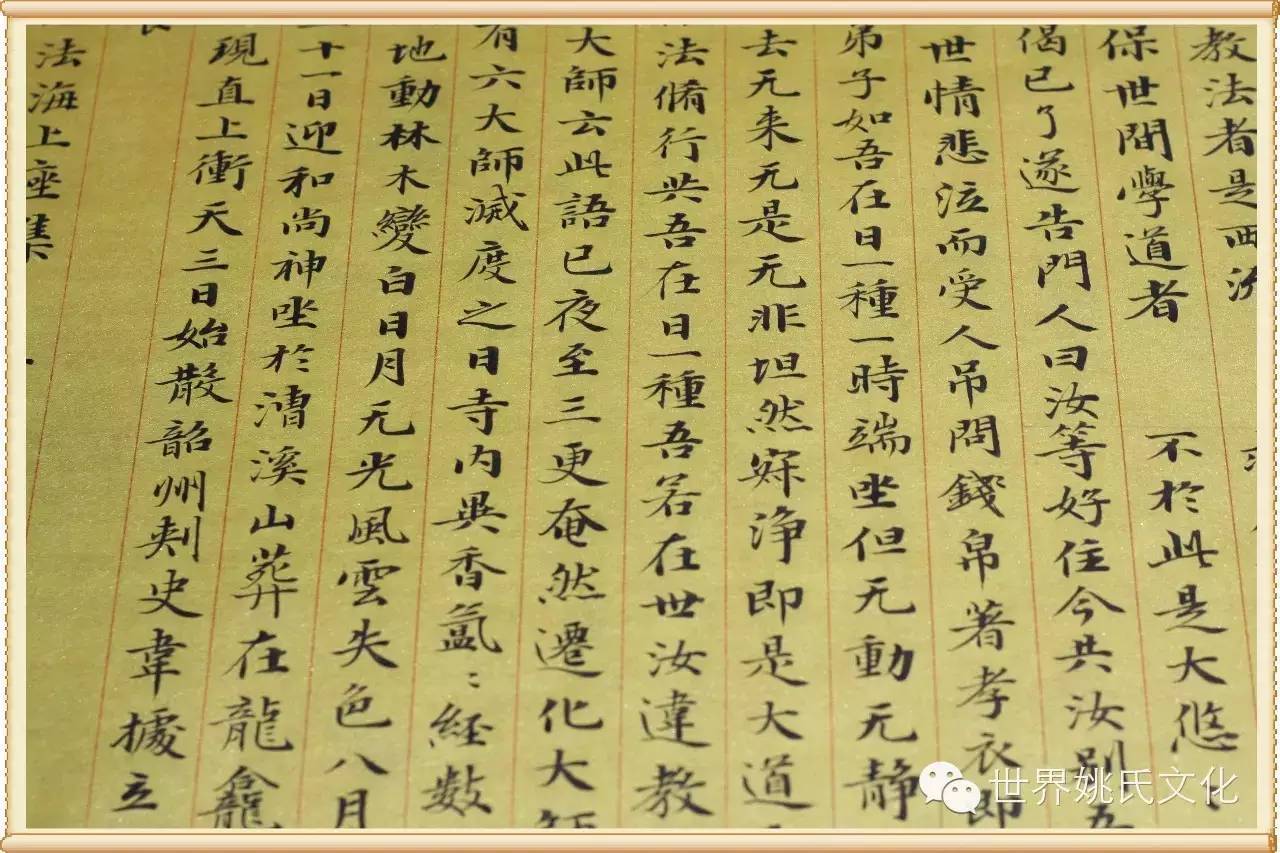 教法者是西
保世間學道者 不於此是大悠
偈已了遂告門人曰汝等好住今共汝別吾
世情悲泣而受人吊問錢帛著孝衣即
弟子如吾在日一種一時端坐但无動无静
去无来无是无非坦然寂浄即是大道
法脩行共吾在日一種吾若在世汝違教
大師云此語已夜至三更奄然遷化大師
有六大師滅度之日寺内異香氳:経數
地動林木變白日月无光風雲失色八月
十一日迎和尚神坐於漕溪山葬在龍龕
現直上衝天三日始散韶州刺史韋據立
法海上座集
世界姚氏文化